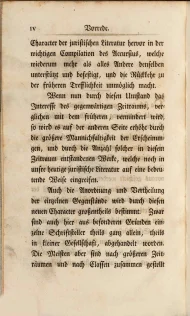 IV Vorrede.
Character der juristischen Literatur hervor in der
wichtigen Compilation des Accursius, welche
wiederum mehr als alles Andere denselben
unterstützt und befestigt, und die Rückkehr zu
der früheren Trefflichkeit unmöglich macht.
Wenn nun durch diesen Umstand das
Interesse des gegenwärtigen Zeitraums, ver-
glichen mit dem früheren, vermindert wird,
so wird es auf der anderen Seite erhöht durch
die größere Mannichfaltigkeit der Erscheinun-
gen, und durch die Anzahl solcher in diesem
Zeitraum entstandenen Werke, welche noch in
unsre heutige juristische Literatur auf eine bedeu-
tende Weise eingreifen.
Auch die Anordnung und Vertheilung
der einzelnen Gegenstände wird durch diesen
neuen Character großentheils bestimmt. Zwar
sind auch hier aus besonderen Gründen ein-
zelne Schriftsteller theils ganz allein, theils
in kleiner Gesellschaft, abgehandelt worden.
Die Meisten aber sind nach größeren Zeit-
räumen und nach Classen zusammen gestellt